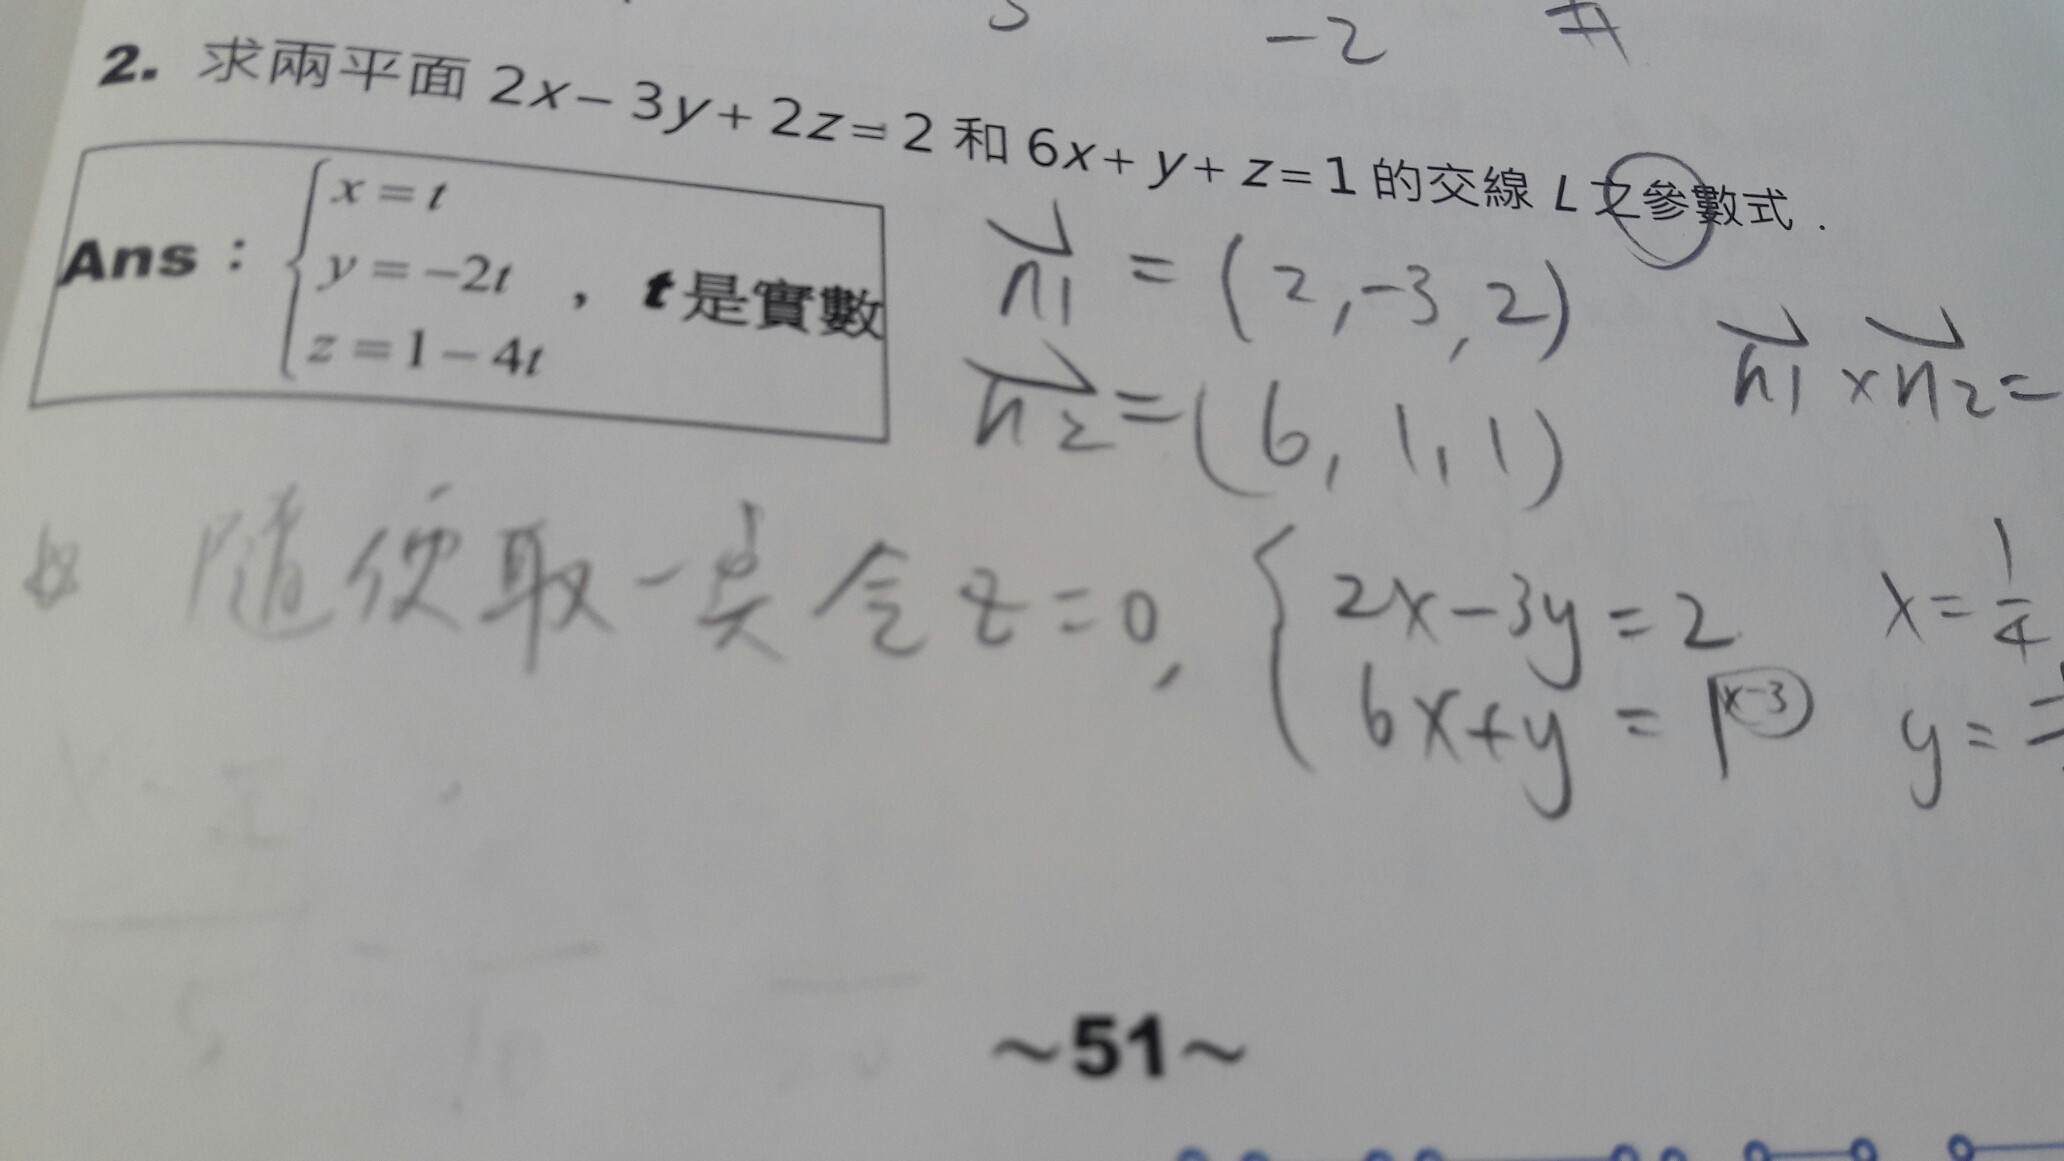 -2
2. 求兩平面 2x-3y+2z=2 和 6x+y+z=1 的交線 L 之參數式.
Ans: { x=t
y=-2t , t是實數
z=1-4t
n1 = (2,-3,2)
n2 = (6,1,1)
n1 x n2 =
隨便取一點 令 z=0, { 2x-3y=2
6x+y=1 x-3
x=1/4
y=-
~51~